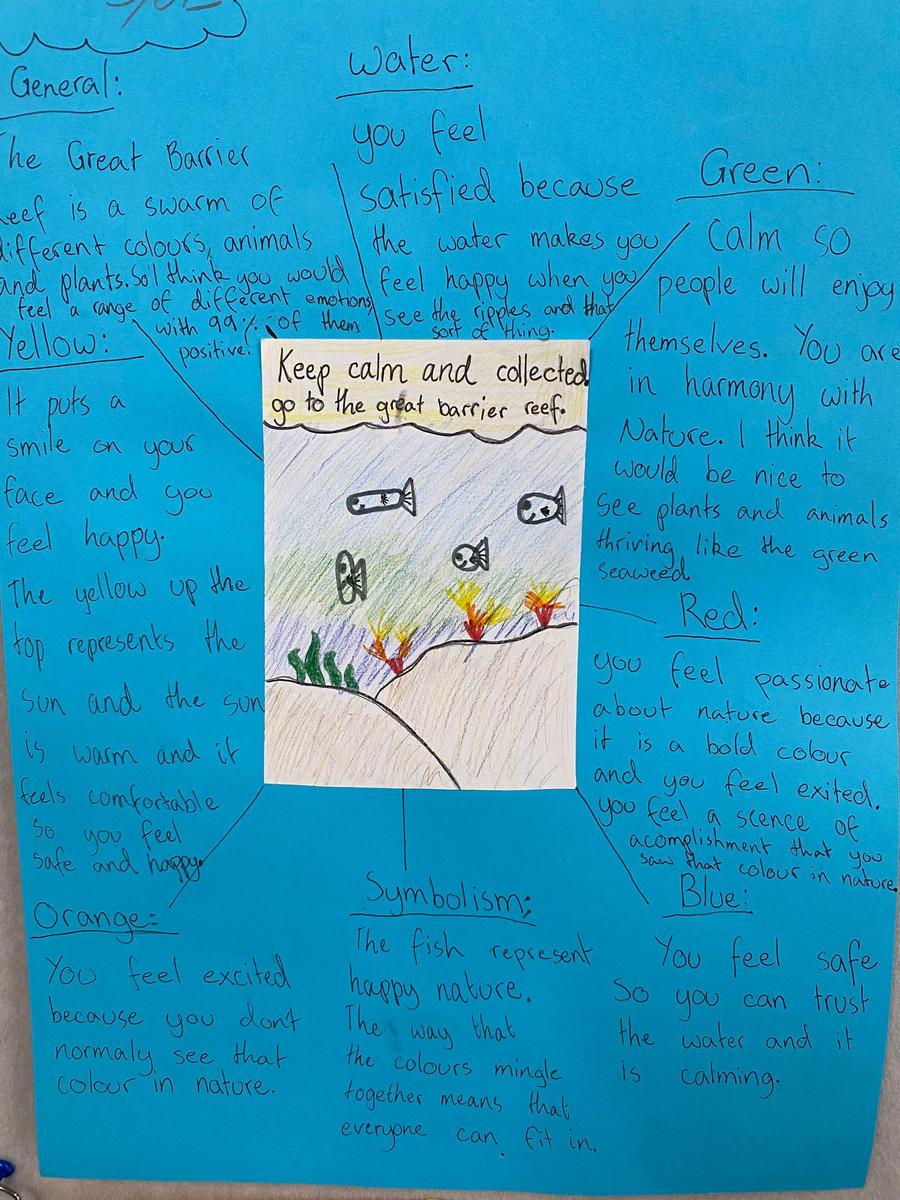 General:
The Great Barrier
reef is a swarm of
different colours, animals
and plants. So I think you would
feel a range of different emotions
with 99% of them
positive.
Water:
you feel
satisfied because
the water makes you
feel happy when you
see the ripples and that
sort of thing.
Green:
Calm so
people will enjoy
themselves. You are
in harmony with
Nature. I think it
would be nice to
see plants and animals
thriving, like the green
seaweed
Yellow:
It puts a
smile on your
face and you
feel happy.
The yellow up the
top represents the
sun and the sun
is warm and it
feels comfortable
so you feel
safe and happy.
Keep calm and collected
go to the great barrier reef.
Red:
you feel passionate
about nature because
it is a bold colour
and you feel exited.
you feel a scence of
acomplishment that you
saw that colour in nature.
Orange:
You feel excited
because you don't
normaly see that
colour in nature.
Symbolism:
The fish represent
happy nature.
The way that
the colours mingle
together means that
everyone can fit in.
Blue:
You feel safe
So you can trust
the water and it
is calming.